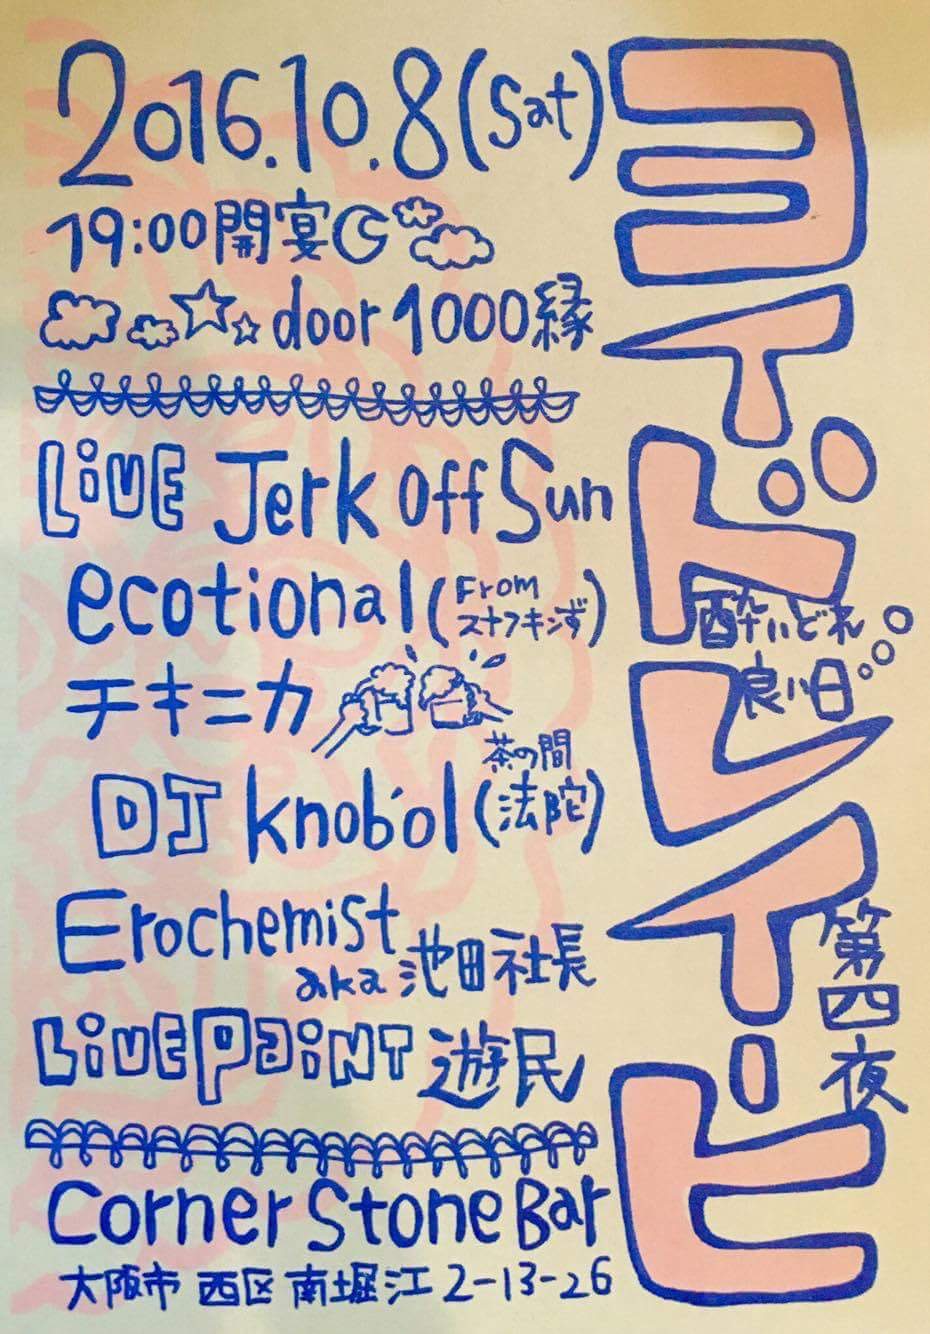 2016.10.8(Sat)
19:00開宴
door 1000縁
LiVE Jerk Off Sun
ecotional(From スナフキンず)
チキニカ
DJ knob'ol(茶の間 法陀)
Erochemist
aka 池田社長
LiVE PaiNT 遊民
Corner Stone Bar
大阪市 西区 南堀江 2-13-26
ヨイドレイ・ヒ
酔いどれ
良い日
第四夜